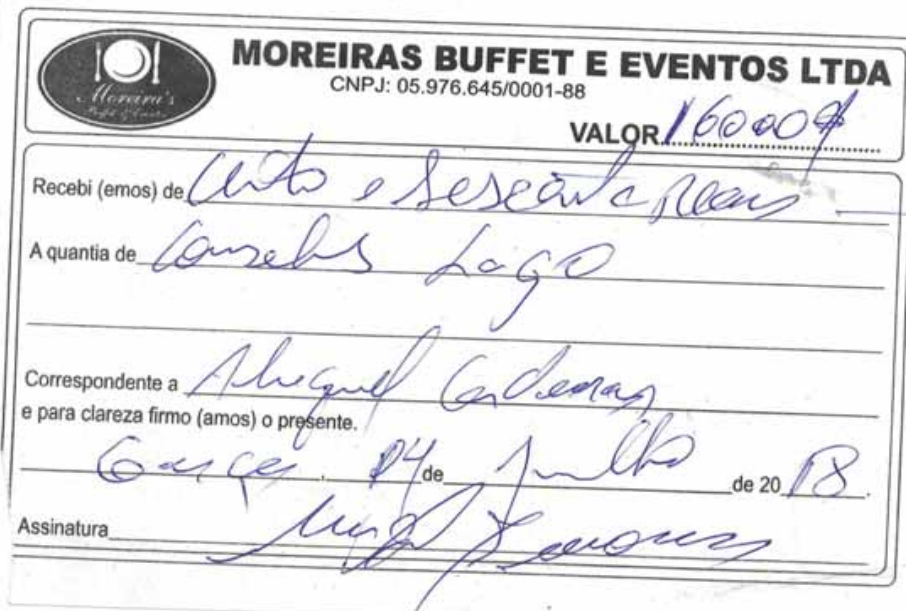 Moreira's
MOREIRAS BUFFET E EVENTOS LTDA
CNPJ: 05.976.645/0001-88
VALOR 160,00
Recebi (emos) de Cento e Sessenta Reais
A quantia de Lago
Correspondente a Aluguel Cadeiras
e para clareza firmo (amos) o presente.
Garça, 04 de Julho de 20 18.
Assinatura